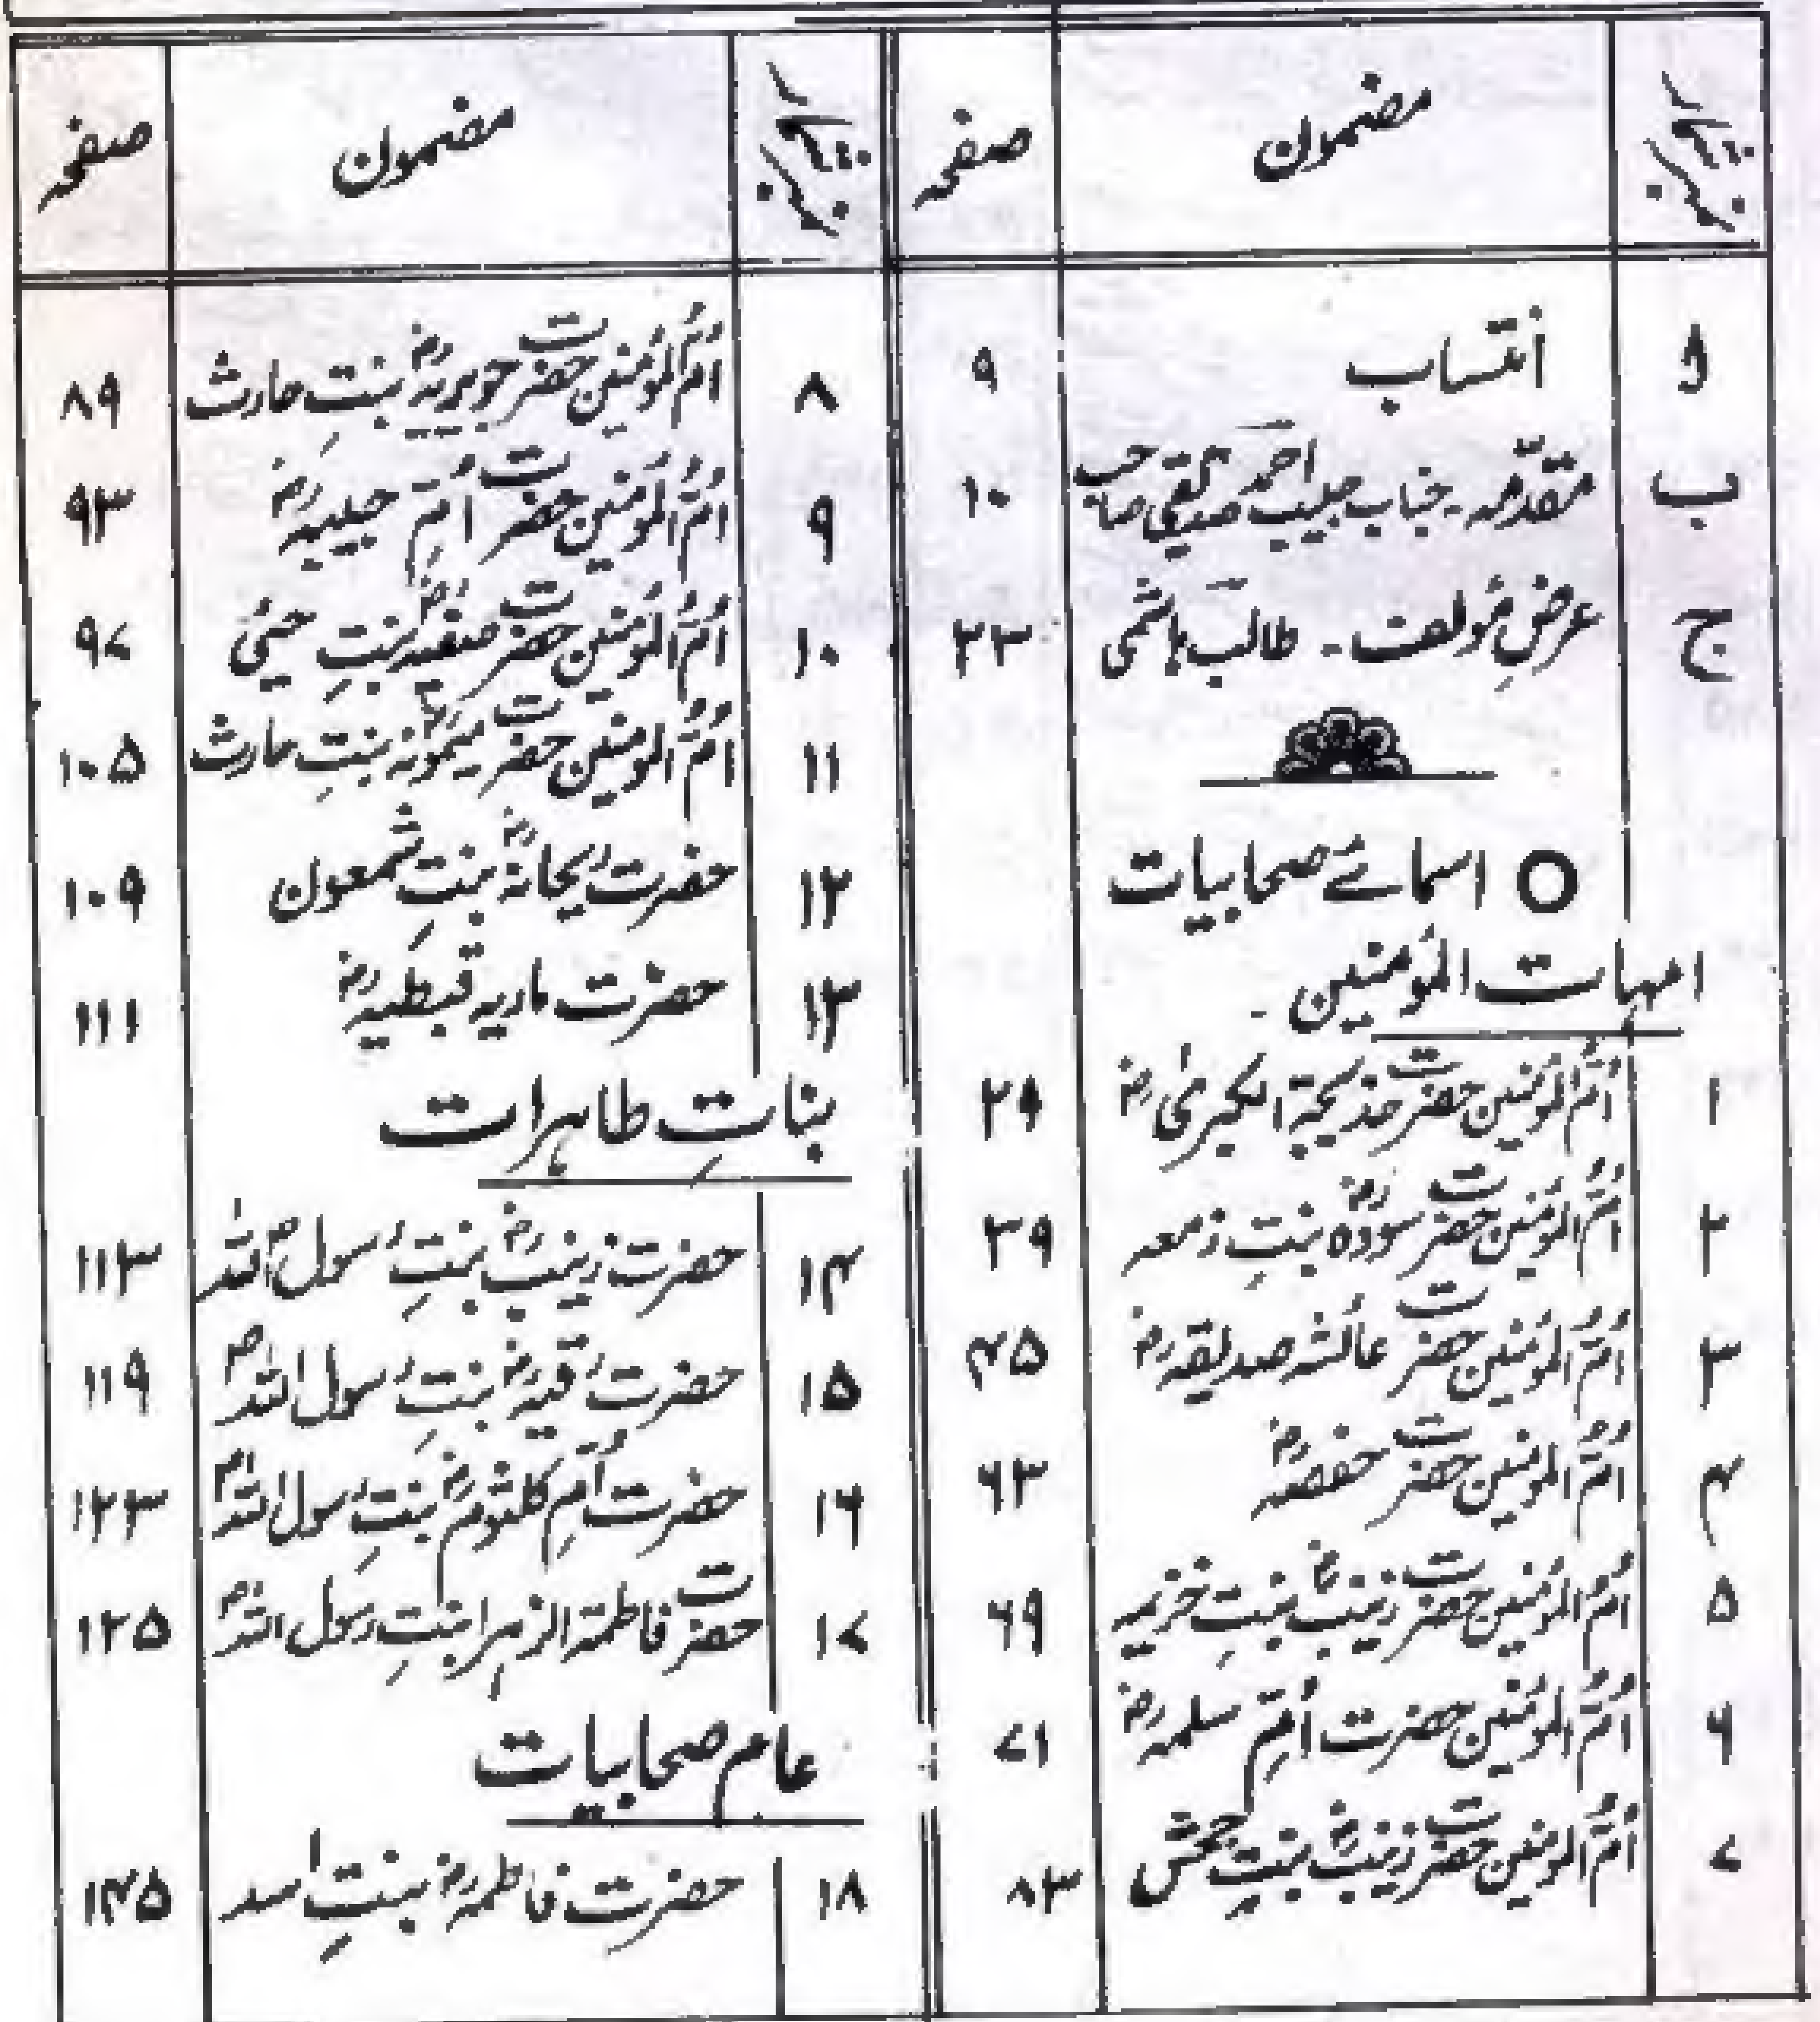 نمبر شمار مضمون صفحہ
ا انتساب ۹
ب مقدّمہ ۔ جناب حبیب احمد صدیقی صاحب ۱۰
ج عرضِ مُولف ۔ طالب ہاشمی ۲۳
O اسمائے صحابیات
امہات المؤمنین
۱ اُمُّ المؤمنین حضرت خدیجۃ الکبریٰ رضؓ ۲۹
۲ اُمُّ المؤمنین حضرت سودہؓ بنتِ زمعہ ۳۹
۳ اُمُّ المؤمنین حضرت عائشہ صدیقہؓ ۴۵
۴ اُمُّ المؤمنین حضرت حفصہؓ ۶۳
۵ اُمُّ المؤمنین حضرت زینبؓ بنتِ خزیمہ ۶۹
۶ اُمُّ المؤمنین حضرت اُمِّ سلمہؓ ۷۱
۷ اُمُّ المؤمنین حضرت زینبؓ بنتِ جحش ۸۳
نمبر شمار مضمون صفحہ
۸ اُمُّ المؤمنین حضرت جویریہؓ بنتِ حارث ۸۹
۹ اُمُّ المؤمنین حضرت اُمِّ حبیبہؓ ۹۳
۱۰ اُمُّ المؤمنین حضرت صفیہؓ بنتِ حیَی ۹۷
۱۱ اُمُّ المؤمنین حضرت میمونہؓ بنتِ حارث ۱۰۵
۱۲ حضرت ریحانہؓ بنتِ شمعون ۱۰۹
۱۳ حضرت ماریہ قبطیہؓ ۱۱۱
بناتِ طاہرات
۱۴ حضرت زینبؓ بنتِ رسول اللہؐ ۱۱۳
۱۵ حضرت رقیہؓ بنتِ رسول اللہؐ ۱۱۹
۱۶ حضرت اُمِّ کلثومؓ بنتِ رسول اللہؐ ۱۲۳
۱۷ حضرت فاطمۃ الزہرا بنتِ رسول اللہؐ ۱۲۵
عام صحابیات
۱۸ حضرت فاطمہؓ بنتِ اسد ۱۴۵